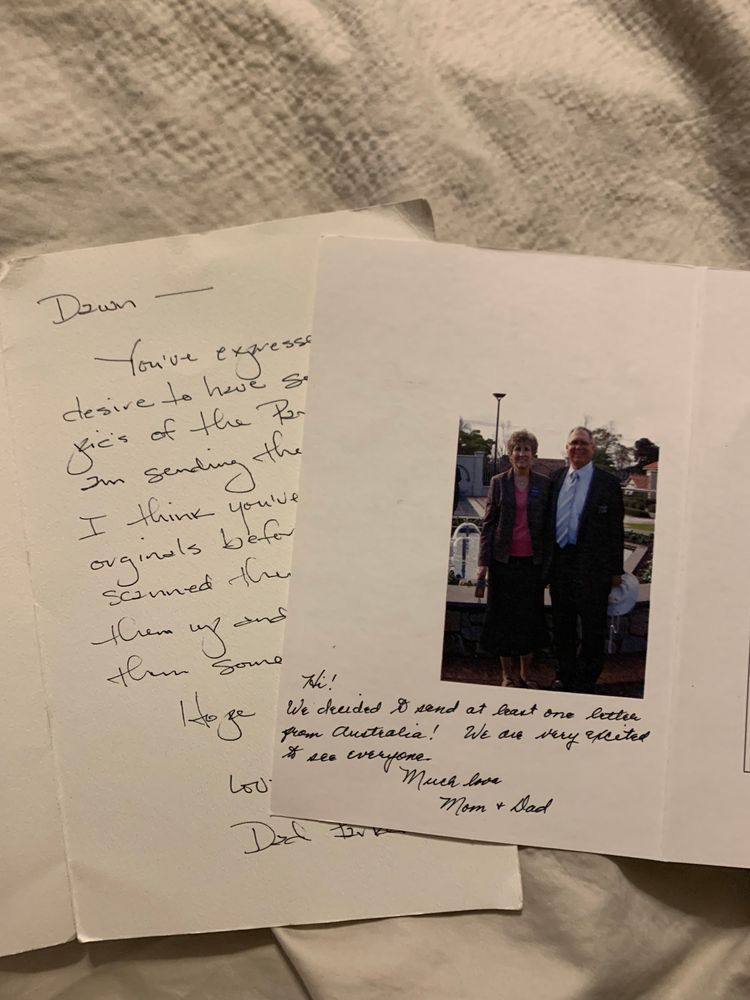 Dawn —
You've express
desire to have so
pic's of the Par
Im sending the
I think you've
orginals befor
scanned the
them up and
them some
Hope
Lov
Dad
Hi!
We decided to send at least one letter
from Australia! We are very excited
to see everyone.
Much love
Mom + Dad